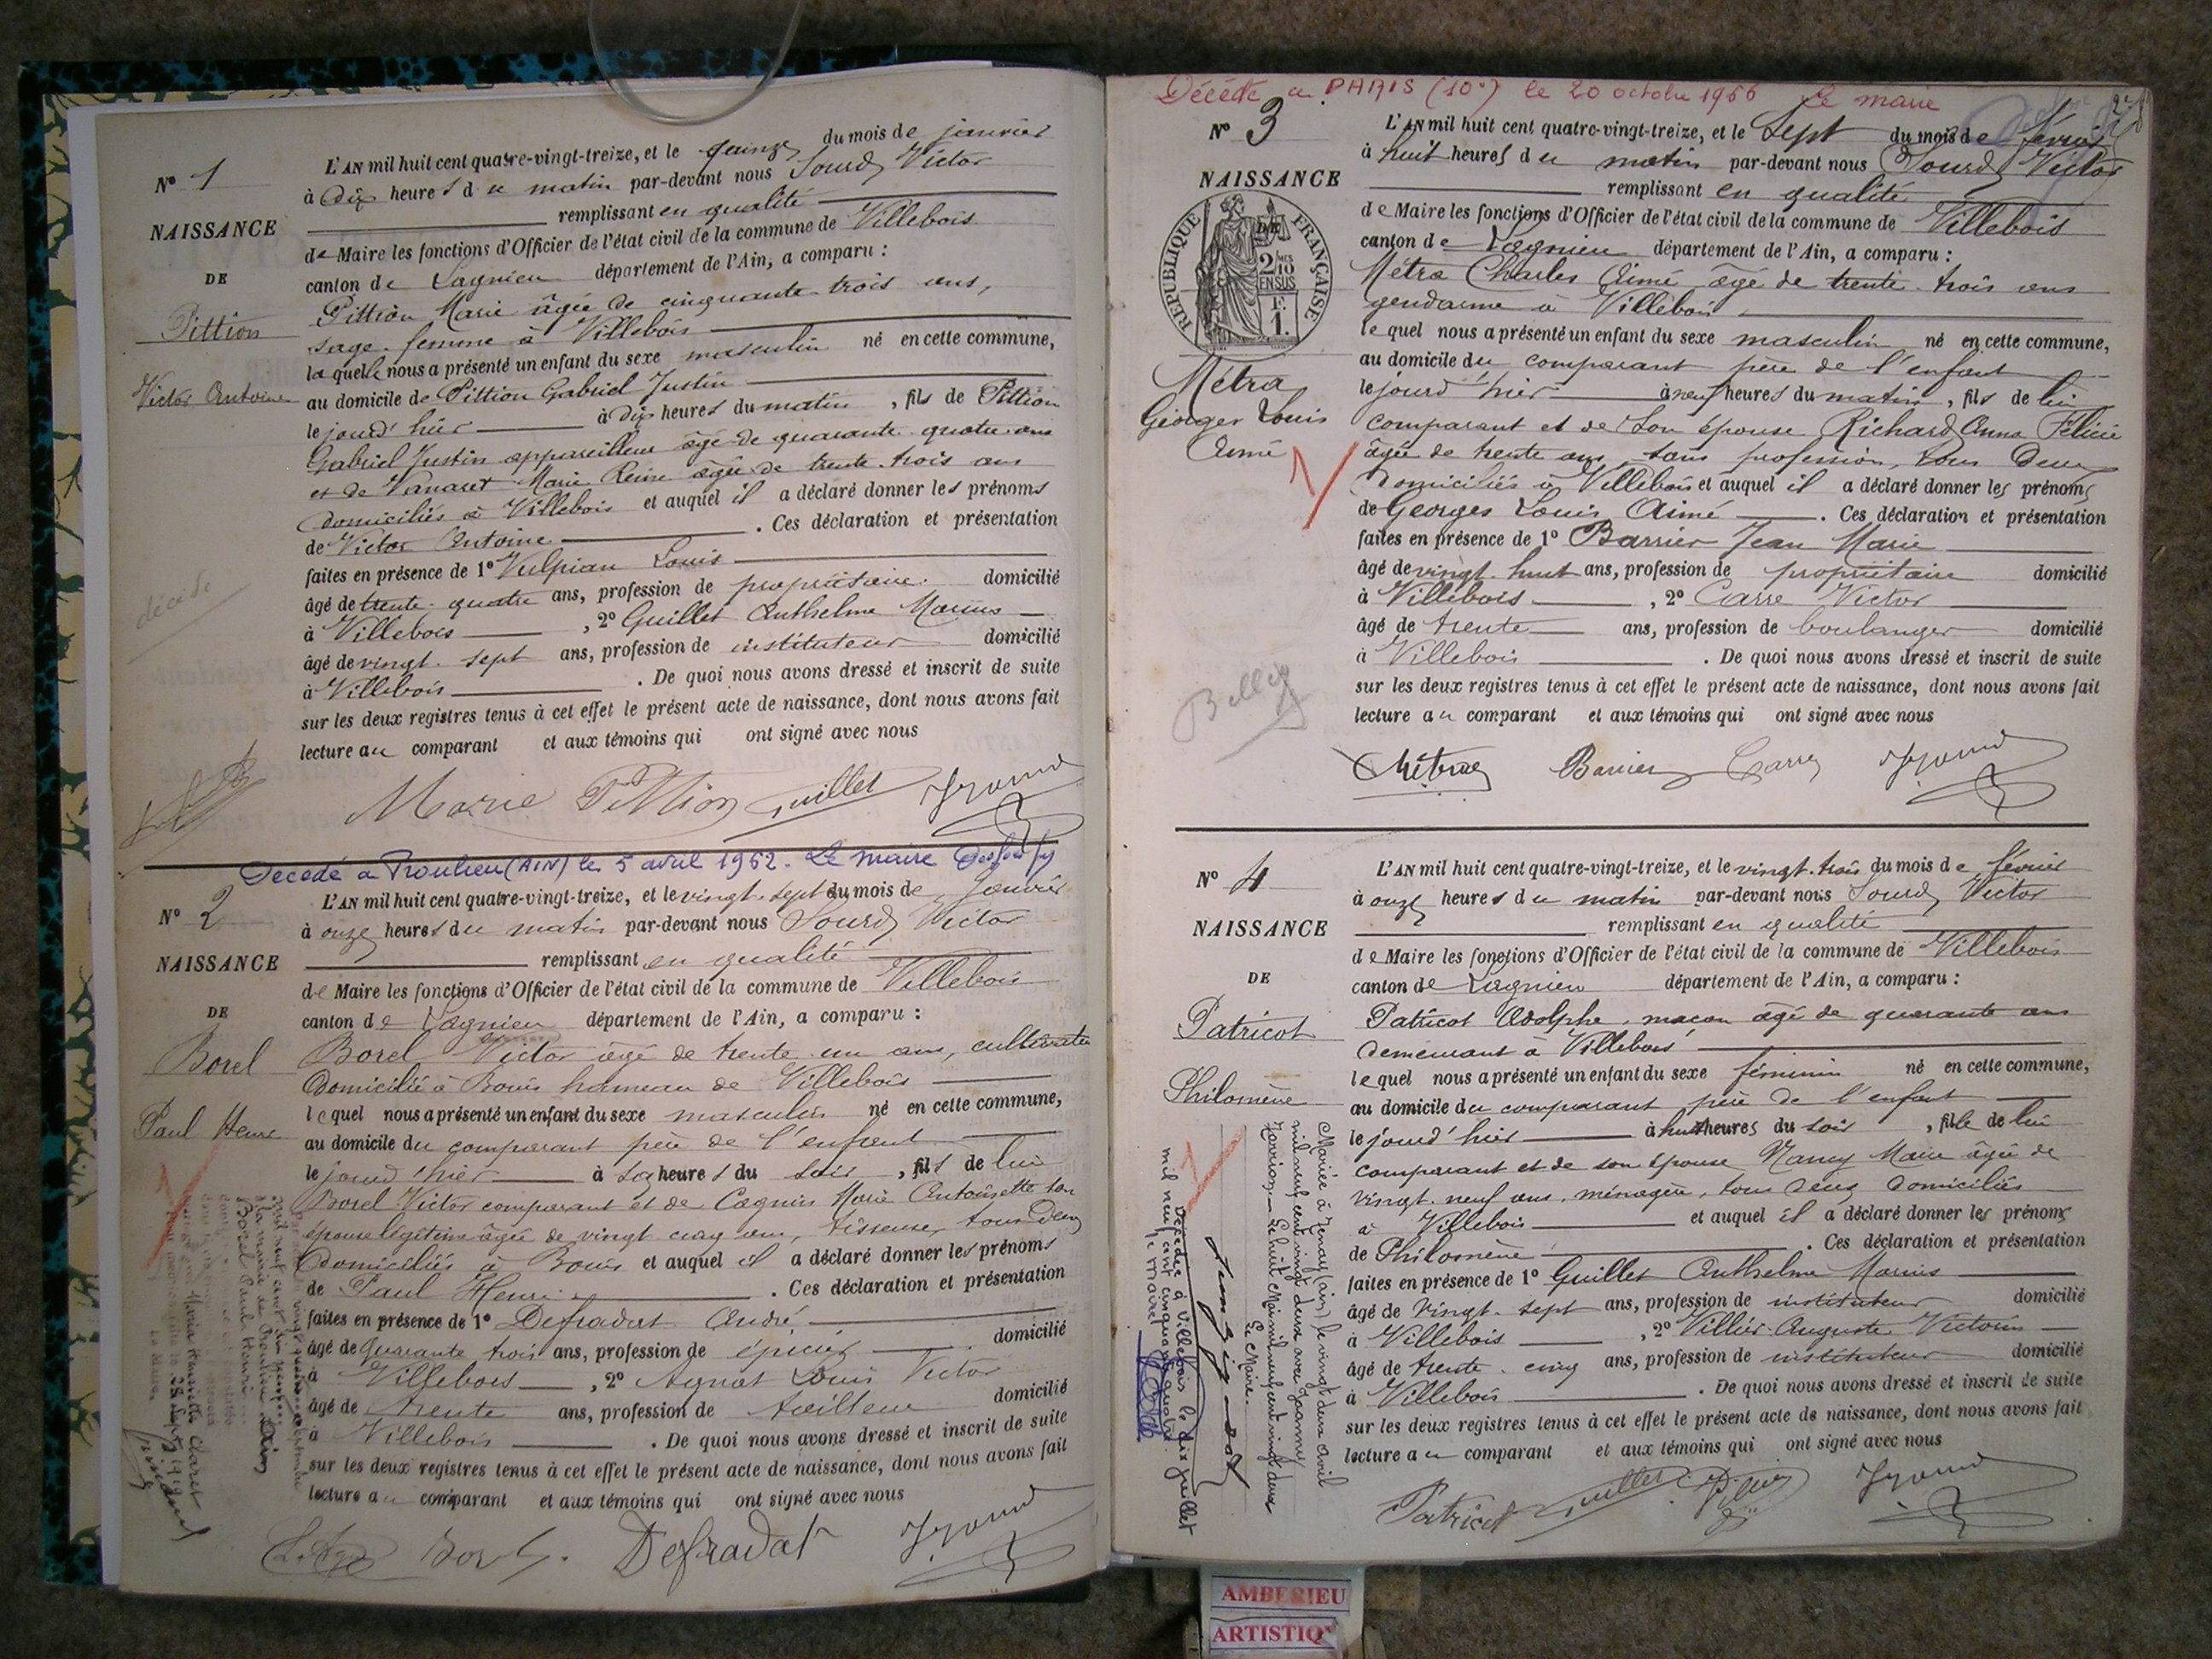 N° 1
NAISSANCE
DE
Pittion
Victor Antoine
décédé
L'AN mil huit cent quatre-vingt-treize, et le quinze du mois de janvier
à dix heures du matin par-devant nous Sourd Victor
remplissant en qualité
de Maire les fonctions d'Officier de l'état civil de la commune de Villebois
canton de Lagnieu département de l'Ain, a comparu :
Pittion Marie âgée de cinquante trois ans,
sage-femme à Villebois
laquelle nous a présenté un enfant du sexe masculin né en cette commune,
au domicile de Pittion Gabriel Justin
le jourd'hier à dix heures du matin, fils de Pittion
Gabriel Justin appareilleur âgé de quarante quatre ans
et de Vanaret Marie Reine âgée de trente-trois ans
domiciliés à Villebois et auquel il a déclaré donner les prénoms
de Victor Antoine . Ces déclaration et présentation
faites en présence de 1° Vulpian Louis
âgé de trente-quatre ans, profession de propriétaire domicilié
à Villebois , 2° Guillet Anthelme Marius
âgé de vingt-sept ans, profession de instituteur domicilié
à Villebois . De quoi nous avons dressé et inscrit de suite
sur les deux registres tenus à cet effet le présent acte de naissance, dont nous avons fait
lecture au comparant et aux témoins qui ont signé avec nous
Marie Pittion Guillet
Décédé à Proulieu (AIN) le 5 avril 1962. Le maire
N° 2
NAISSANCE
DE
Borel
Paul Henri
L'AN mil huit cent quatre-vingt-treize, et le vingt-sept du mois de Janvier
à onze heures du matin par-devant nous Sourd Victor
remplissant en qualité
de Maire les fonctions d'Officier de l'état civil de la commune de Villebois
canton de Lagnieu département de l'Ain, a comparu :
Borel Victor âgé de trente un ans, cultivateur
domicilié à Bouis hameau de Villebois
lequel nous a présenté un enfant du sexe masculin né en cette commune,
au domicile du comparant père de l'enfant
le jourd'hier à six heures du soir, fils de lui
Borel Victor comparant et de Cagnin Marie Antoinette son
épouse légitime âgée de vingt cinq ans, tisseuse, tous deux
domiciliés à Bouis et auquel il a déclaré donner les prénoms
de Paul Henri . Ces déclaration et présentation
faites en présence de 1° Defradat André
âgé de quarante trois ans, profession de épicier domicilié
à Villebois , 2° Louis Victor
âgé de trente ans, profession de tailleur domicilié
à Villebois . De quoi nous avons dressé et inscrit de suite
sur les deux registres tenus à cet effet le présent acte de naissance, dont nous avons fait
lecture au comparant et aux témoins qui ont signé avec nous
Borel Defradat
Borel Paul Henri
Maria Henriette Claret
Décédé à PARIS (10e) le 20 octobre 1966 Le maire
N° 3
NAISSANCE
RÉPUBLIQUE FRANÇAISE
DE
2/10
EN SUS
1 F.
Métra
Georges Louis
Aimé
Belley
L'AN mil huit cent quatre-vingt-treize, et le sept du mois de février
à huit heures du matin par-devant nous Sourd Victor
remplissant en qualité
de Maire les fonctions d'Officier de l'état civil de la commune de Villebois
canton de Lagnieu département de l'Ain, a comparu :
Métra Charles Aimé âgé de trente-trois ans
gendarme à Villebois
lequel nous a présenté un enfant du sexe masculin né en cette commune,
au domicile du comparant père de l'enfant
le jourd'hier à neuf heures du matin, fils de lui
comparant et de son épouse Richard Anna Félicie
âgée de trente ans, sans profession, tous deux
domiciliés à Villebois et auquel il a déclaré donner les prénoms
de Georges Louis Aimé . Ces déclaration et présentation
faites en présence de 1° Barrier Jean Marie
âgé de vingt-huit ans, profession de propriétaire domicilié
à Villebois , 2° Carre Victor
âgé de trente ans, profession de boulanger domicilié
à Villebois . De quoi nous avons dressé et inscrit de suite
sur les deux registres tenus à cet effet le présent acte de naissance, dont nous avons fait
lecture au comparant et aux témoins qui ont signé avec nous
Métra Barrier Carre
N° 4
NAISSANCE
DE
Patricot
Philomène
L'AN mil huit cent quatre-vingt-treize, et le vingt-trois du mois de février
à onze heures du matin par-devant nous Sourd Victor
remplissant en qualité
de Maire les fonctions d'Officier de l'état civil de la commune de Villebois
canton de Lagnieu département de l'Ain, a comparu :
Patricot Adolphe, maçon âgé de quarante ans
demeurant à Villebois
lequel nous a présenté un enfant du sexe féminin né en cette commune,
au domicile du comparant père de l'enfant
le jourd'hier à huit heures du soir, fille de lui
comparant et de son épouse Nancy Marie âgée de
vingt-neuf ans, ménagère, tous deux domiciliés
à Villebois et auquel il a déclaré donner les prénoms
de Philomène . Ces déclaration et présentation
faites en présence de 1° Guillet Anthelme Marius
âgé de vingt-sept ans, profession de instituteur domicilié
à Villebois , 2° Villier Auguste Victorin
âgé de trente-cinq ans, profession de instituteur domicilié
à Villebois . De quoi nous avons dressé et inscrit de suite
sur les deux registres tenus à cet effet le présent acte de naissance, dont nous avons fait
lecture au comparant et aux témoins qui ont signé avec nous
Patricot Guillet
Mariée à Tenay (ain) le vingt deux avril
mil neuf cent vingt deux avec Jeanny
Le huit Mai mil neuf cent vingt deux
Le Maire
Décédée à Villebois le dix juillet
mil neuf cent cinquante quatre
Le Maire
AMBERIEU
ARTISTIQ